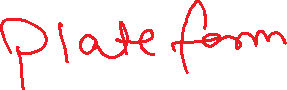 plate form